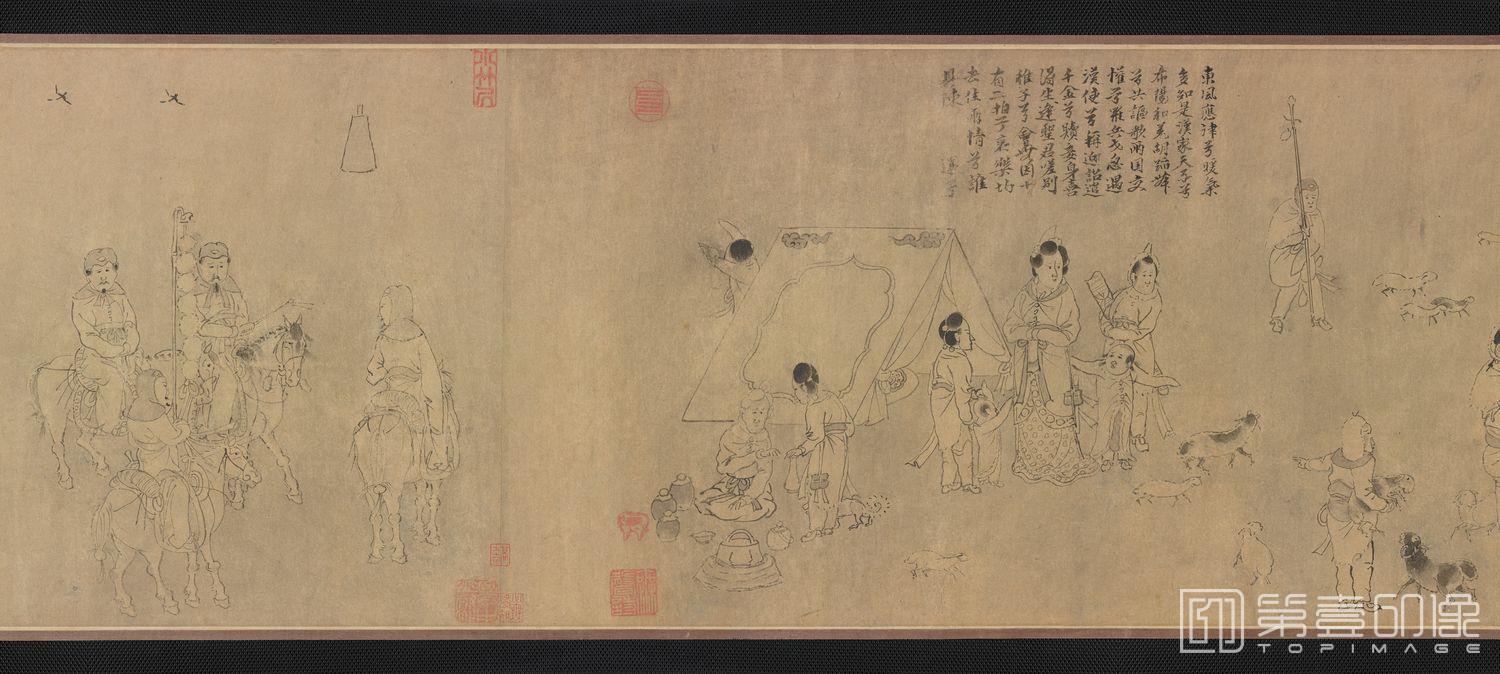 東風應律兮暖氣
多知是漢家天子兮
布陽和羌胡蹈舞
兮共謳歌兩国交
懽兮罷兵戈忽遇
漢使兮稱近詔遣
千金兮贖妾身喜
得生逢聖君嗟別
稚子兮會無因十
有二拍兮哀樂均
去住兩情兮誰
具陳
第壹印像
TOPIMAGE